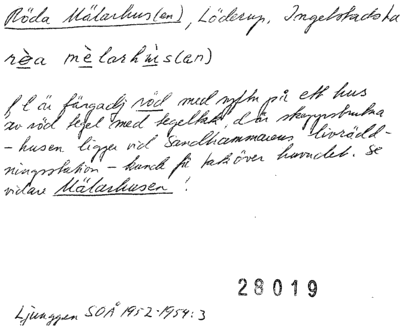 Röda Mälarhus(en), Löderup, Ingelstads hd
rèa mèlarhùs(an)
f.l. är färgadj röd med syftn på ett hus
av röd tegel med tegeltak, där skeppsbrutna
– husen ligger vid Sandhammarens livrädd-
ningsstation – kunde få tak över huvudet. Se
vidare Mälarhusen!
28019
Ljunggen SOÅ 1952-1954:3